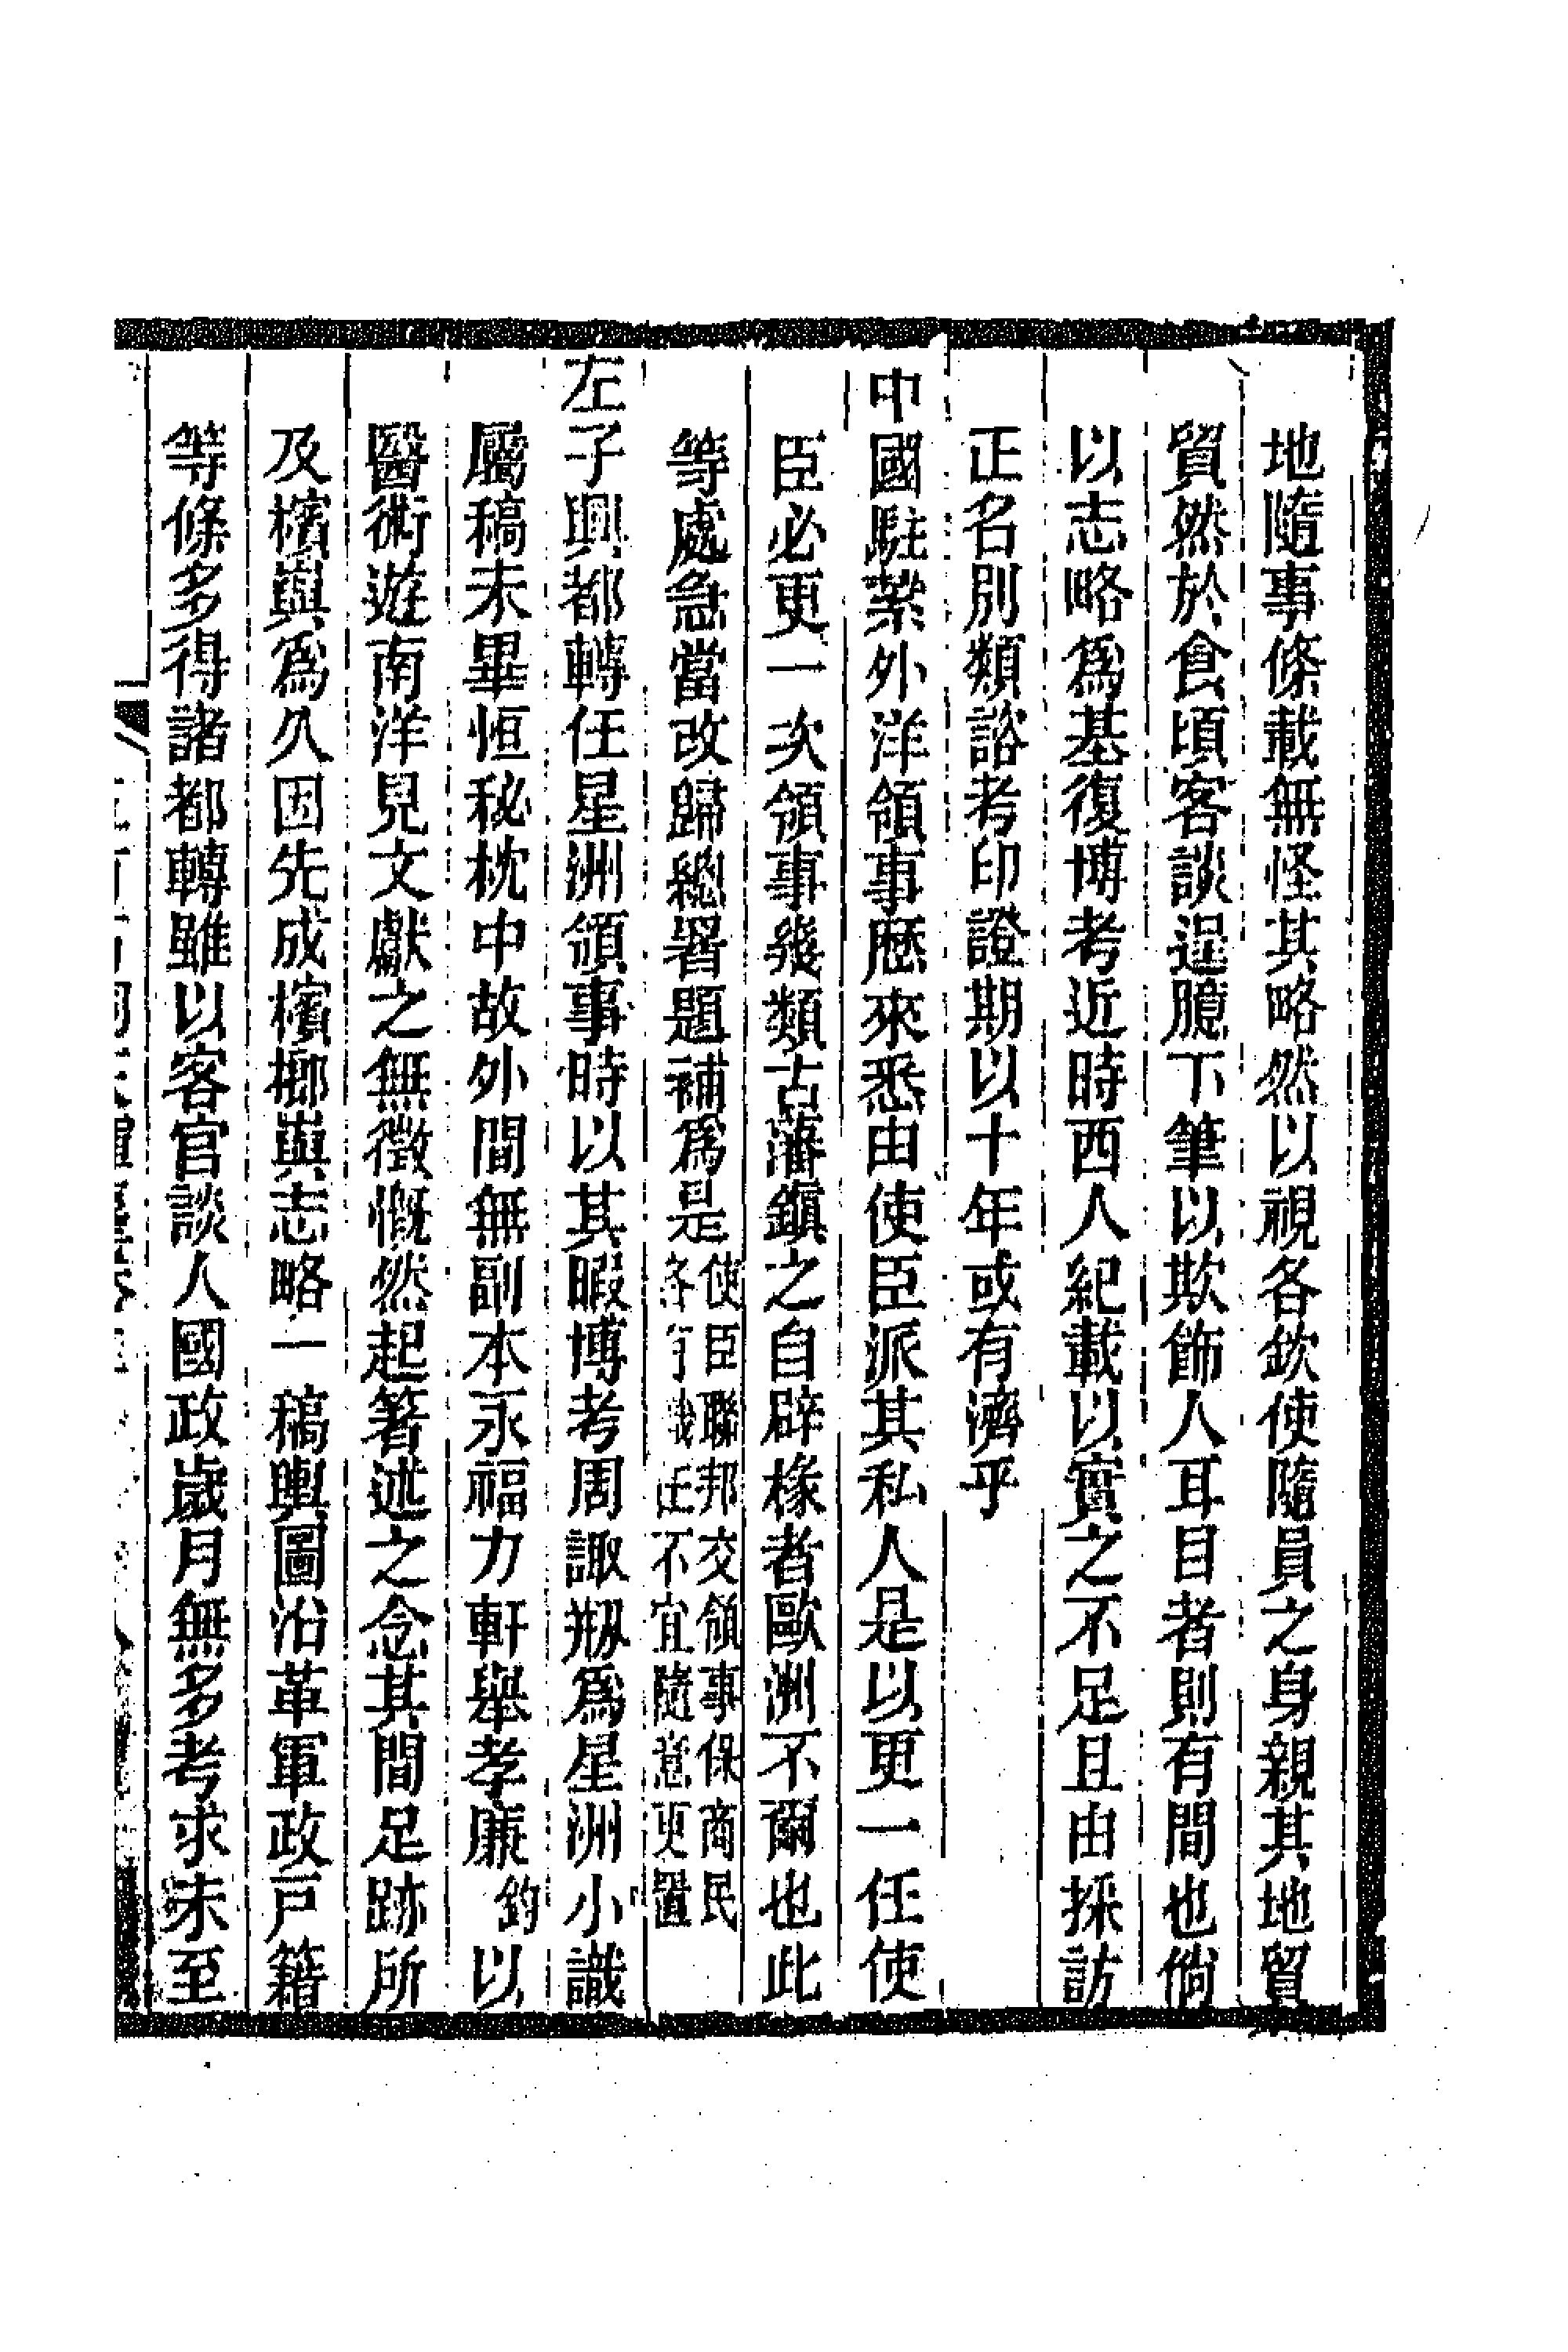 地隨事條載無怪其略然以視各欽使隨員之身親其地貿
貿然於食頃客談逞臆下筆以欺飾人耳目者則有間也倘
以志略爲基復博考近時西人紀載以實之不足且由採訪
正名別類諮考印證期以十年或有濟乎
中國駐紮外洋領事歷來悉由使臣派其私人是以更一任使
臣必更一次領事幾類古藩鎮之自辟椽者歐洲不爾也此
等處急當改歸總署題補爲是使臣聯邦交領事保商民
各有職任不宜隨意更置
左子興都轉任星洲領事時以其暇博考周諏刱爲星洲小識
屬稿未畢恒秘枕中故外間無副本永福力軒舉孝廉鈞以
醫術遊南洋見文獻之無徵慨然起箸述之念其間足跡所
及檳嶼爲久因先成檳榔嶼志略一稿輿圖沿革軍政戶籍
等條多得諸都轉雖以客官談人國政歲月無多考求未至